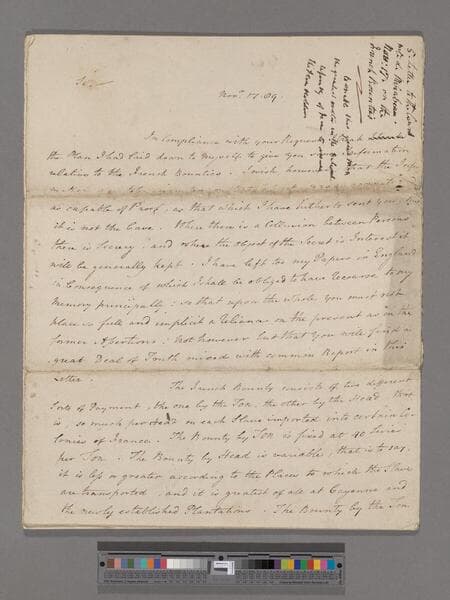 5th Letter to the Comte
de Mirabeau
Nov: 17. on the
French Bounties
Sir
Novr 17. 89.
In Compliance with your Request
the Plan I had laid down to myself to give you Information
relating to the French Bounties. I wish however that the
as capable of Proof, as that which I have hitherto sent you, but
it is not the Case. Where there is a Collusion between Persons
there is Secrecy, and where the object of the Secret is Interest it
will be generally kept. I have left too my Papers in England
in Consequence of which I shall be obliged to have Recourse to my
Memory principally; so that upon the whole you must not
place so full and implicit a Reliance on the present as on the
former Assertions: Not however but that you will find a
great Deal of Truth mixed with common Report in this
Letter.
The French Bounty consists of two different
Sorts of Payment, the one by the Ton, the other by the Head, that
is, so much per Head on each Slave imported into certain Co-
lonies of France. The Bounty by Ton is fixed at 40 Livres
per Ton. The Bounty by Head is variable; that is to say,
it is less or greater according to the Places to which the Slaves
are transported, and it is greatest of all at Cayenne and
the newly established Plantations. The Bounty by the Ton